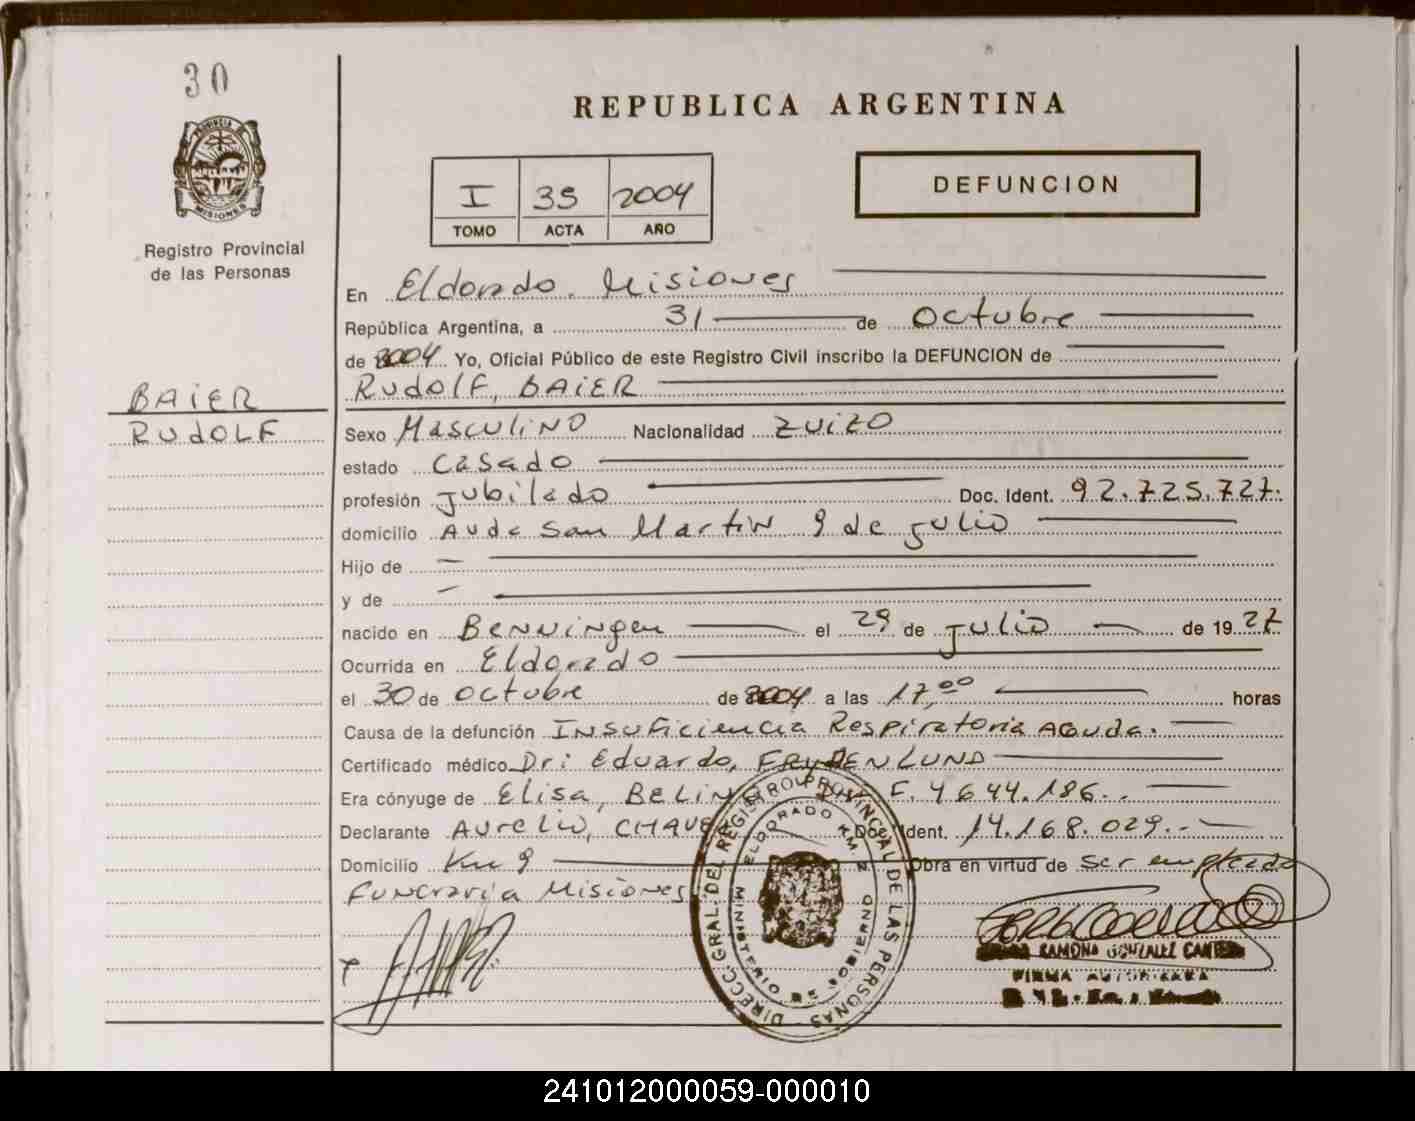 30
PROVINCIA DE
MISIONES
Registro Provincial
de las Personas
BAIER
RUDOLF
REPUBLICA ARGENTINA
I 35 2004
TOMO ACTA AÑO
DEFUNCION
En Eldorado. Misiones
República Argentina, a 31 de Octubre
de 2004 Yo, Oficial Público de este Registro Civil inscribo la DEFUNCION de
RUDOLF, BAIER
Sexo MASCULINO Nacionalidad ZUIZO
estado Casado
profesión Jubilado Doc. Ident. 92.725.727.
domicilio Avda San Martin 9 de julio
Hijo de —
y de —
nacido en Benningen el 29 de julio de 1927
Ocurrida en Eldorado
el 30 de octubre de 2004 a las 17,00 horas
Causa de la defunción Insuficiencia Respiratoria Aguda.
Certificado médico Dr: Eduardo, FRYDENLUND
Era cónyuge de Elisa, BELIN F. 4644.186..
Declarante Aurelio, CHAVE Doc. Ident. 14.168.029.-
Domicilio Km 9 Obra en virtud de ser empleado
Funeraria Misiones
DIRECC. GRAL. DEL REGISTRO PROVINCIAL DE LAS PERSONAS
ELDORADO KM. 2
MINISTERIO DE GOBIERNO
RAMONA GONZALEZ
FIRMA AUTORIZADA
241012000059-000010